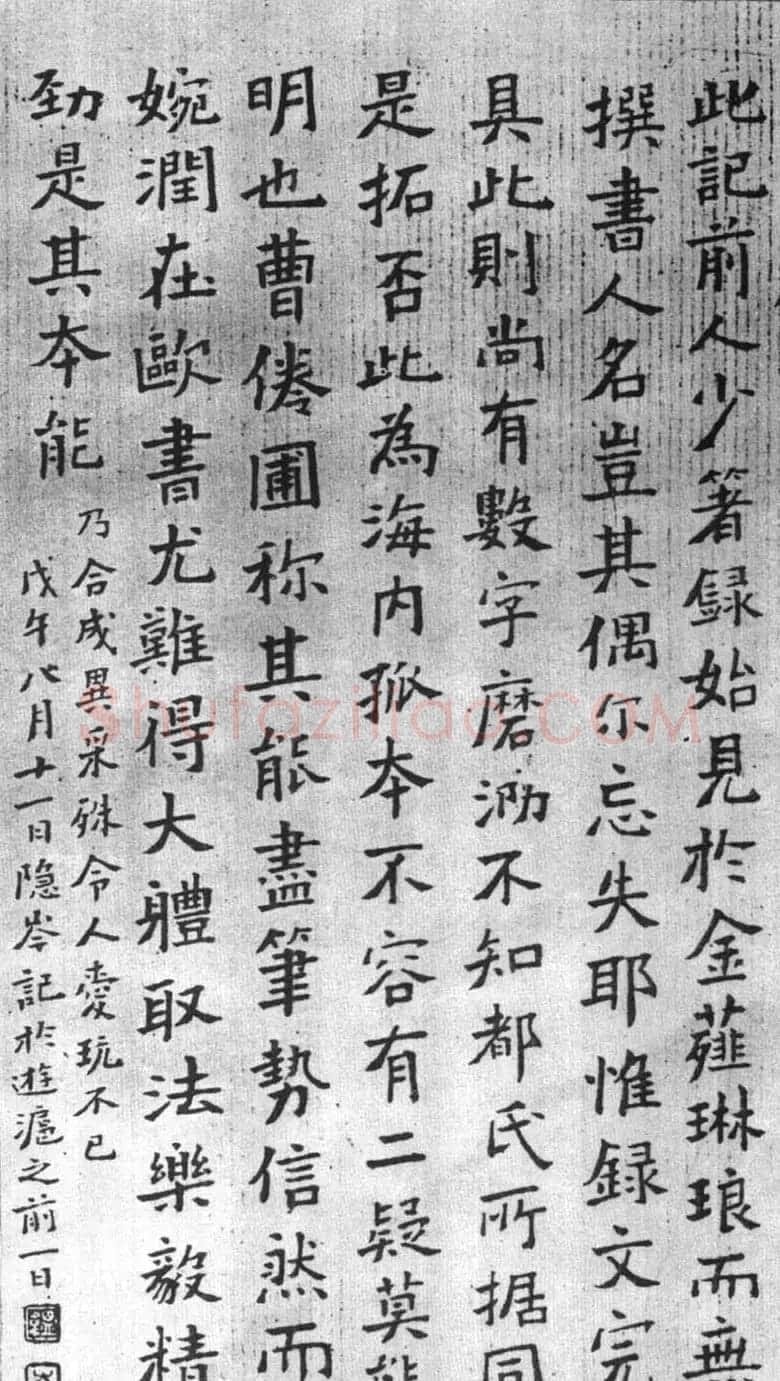 此記前人少箸録始見於金薤琳琅而無
撰書人名豈其偶尓忘失耶惟録文完
具此則尚有數字磨泐不知都氏所据同
是拓否此為海内孤本不容有二疑莫能
明也曹倦圃称其能盡筆勢信然而
婉潤在歐書尤難得大體取法樂毅精
勁是其本能
乃合成異采殊令人愛玩不已
戊午八月十一日隐岑記於遊滬之前一日
Shufaziliao.COM